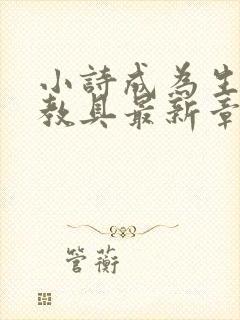 小詩成為生
教具最新章
管蘅